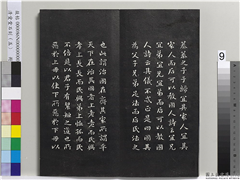 蓁蓁之子于歸宜其家人宜其
家人而后可以教國人詩云宜兄
宜弟宜兄宜弟而后可以教國
人詩云其儀不忒正是四國其
為父子兄弟足法而后民法之
也此謂治國在齊其家所謂平
天下在治其國者上老老而民興
孝上長長而民興弟上恤孤而民
不倍是以君子有絜矩之道也所
惡於上毋以使下所惡於下毋以
9